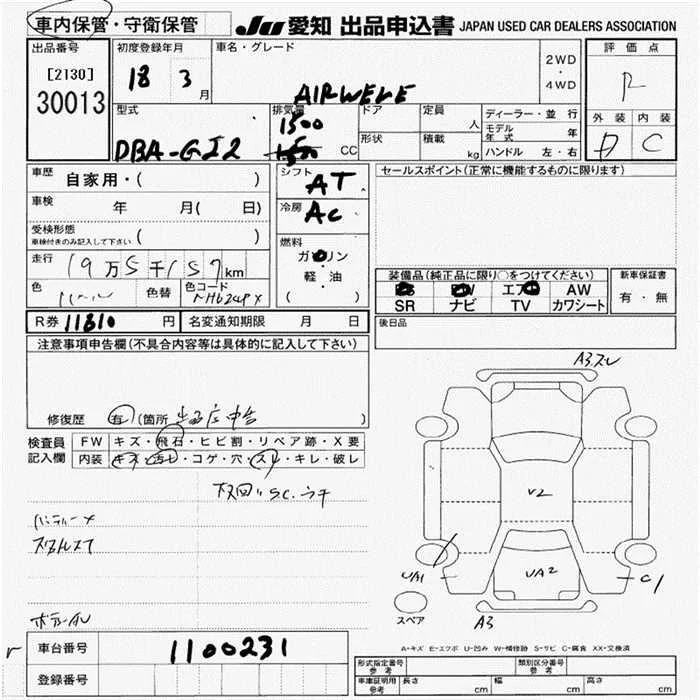 車内保管・守衛保管
JU 愛知 出品申込書 JAPAN USED CAR DEALERS ASSOCIATION
出品番号
[2130]
30013
初度登録年月
18 3 月
車名・グレード
AIRWEVE
2WD
・
4WD
評価点
R
外装 内装
D C
型式
DBA-GJ2
排気量
1500
CC
ドア
形状
定員
人
積載
kg
ディーラー・並行
モデル年式 年
ハンドル 左・右
車歴
自家用・( )
車検 年 月( 日)
受検形態
車検付きのみ記入して下さい ( )
走行 19万5千157km
色
色替
色コード
NH624PX
シフト
AT
冷房
AC
燃料
ガソリン
軽・油
( )
セールスポイント(正常に機能するものに限ります)
装備品(純正品に限り○をつけてください)
AW
SR ナビ TV カワシート
新車保証書
有・無
R券 11810 円
名変通知期限 月 日
後日品
注意事項申告欄(不具合内容等は具体的に記入して下さい)
修復歴 有 (箇所 )
検査員
記入欄
FW キズ・飛石・ヒビ割・リペア跡・X要
内装 キズ・汚レ・コゲ・穴・スレ・キレ・破レ
A3スレ
V2
UA1
UA2
C1
A3
スペア
A-キズ E-エクボ U-凹み W-補修跡 S-サビ C-腐食 XX-交換済
車台番号 1100231
登録番号
形式指定番号
参考
類別区分番号
参考
車庫証明用
参考
長さ cm 幅 cm 高さ cm